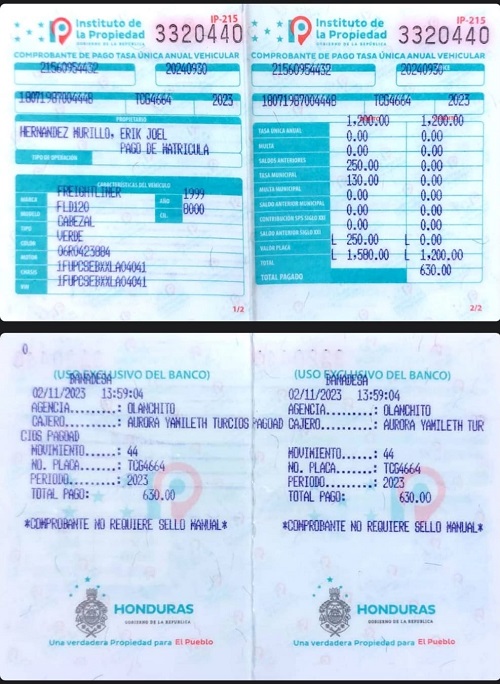 IP-215
Instituto de
la Propiedad
GOBIERNO DE LA REPÚBLICA
3320440
COMPROBANTE DE PAGO TASA ÚNICA ANUAL VEHICULAR
21560954432 20240930
18071987004448 TCG4664 2023
PROPIETARIO
HERNANDEZ MURILLO, ERIK JOEL
PAGO DE MATRICULA
TIPO DE OPERACIÓN
CARACTERÍSTICAS DEL VEHÍCULO
MARCA FREIGHTLINER AÑO 1999
MODELO FLD120 CIL. 8000
TIPO CABEZAL
COLOR VERDE
MOTOR 06R0423884
CHASIS 1FUPCSEBXXLA04041
VIN 1FUPCSEBXXLA04041
1/2
IP-215
Instituto de
la Propiedad
GOBIERNO DE LA REPÚBLICA
3320440
COMPROBANTE DE PAGO TASA ÚNICA ANUAL VEHICULAR
21560954432 20240930
18071987004448 TCG4664 2023
1,200.00 1,200.00
TASA ÚNICA ANUAL 0.00 0.00
MULTA 0.00 0.00
SALDOS ANTERIORES 250.00 0.00
TASA MUNICIPAL 130.00 0.00
MULTA MUNICIPAL 0.00 0.00
SALDO ANTERIOR MUNICIPAL 0.00 0.00
CONTRIBUCIÓN SPS SIGLO XXI 0.00 0.00
SALDO ANTERIOR SIGLO XXI L 250.00 L 0.00
VALOR PLACA L 1,580.00 L 1,200.00
TOTAL
TOTAL PAGADO 630.00
2/2
0
(USO EXCLUSIVO DEL BANCO)
BANADESA
02/11/2023 13:59:04
AGENCIA.........: OLANCHITO
CAJERO..........: AURORA YAMILETH TURCIOS PAGOAD
CIOS PAGOAD
MOVIMIENTO......: 44
NO. PLACA.......: TCG4664
PERIODO.........: 2023
TOTAL PAGO: 630.00
*COMPROBANTE NO REQUIERE SELLO MANUAL*
HONDURAS
GOBIERNO DE LA REPÚBLICA
Una verdadera Propiedad para El Pueblo
(USO EXCLUSIVO DEL BANCO)
BANADESA
02/11/2023 13:59:04
AGENCIA.........: OLANCHITO
CAJERO..........: AURORA YAMILETH TUR
MOVIMIENTO......: 44
NO. PLACA.......: TCG4664
PERIODO.........: 2023
TOTAL PAGO: 630.00
*COMPROBANTE NO REQUIERE SELLO MANUAL*
HONDURAS
GOBIERNO DE LA REPÚBLICA
Una verdadera Propiedad para El Pueblo